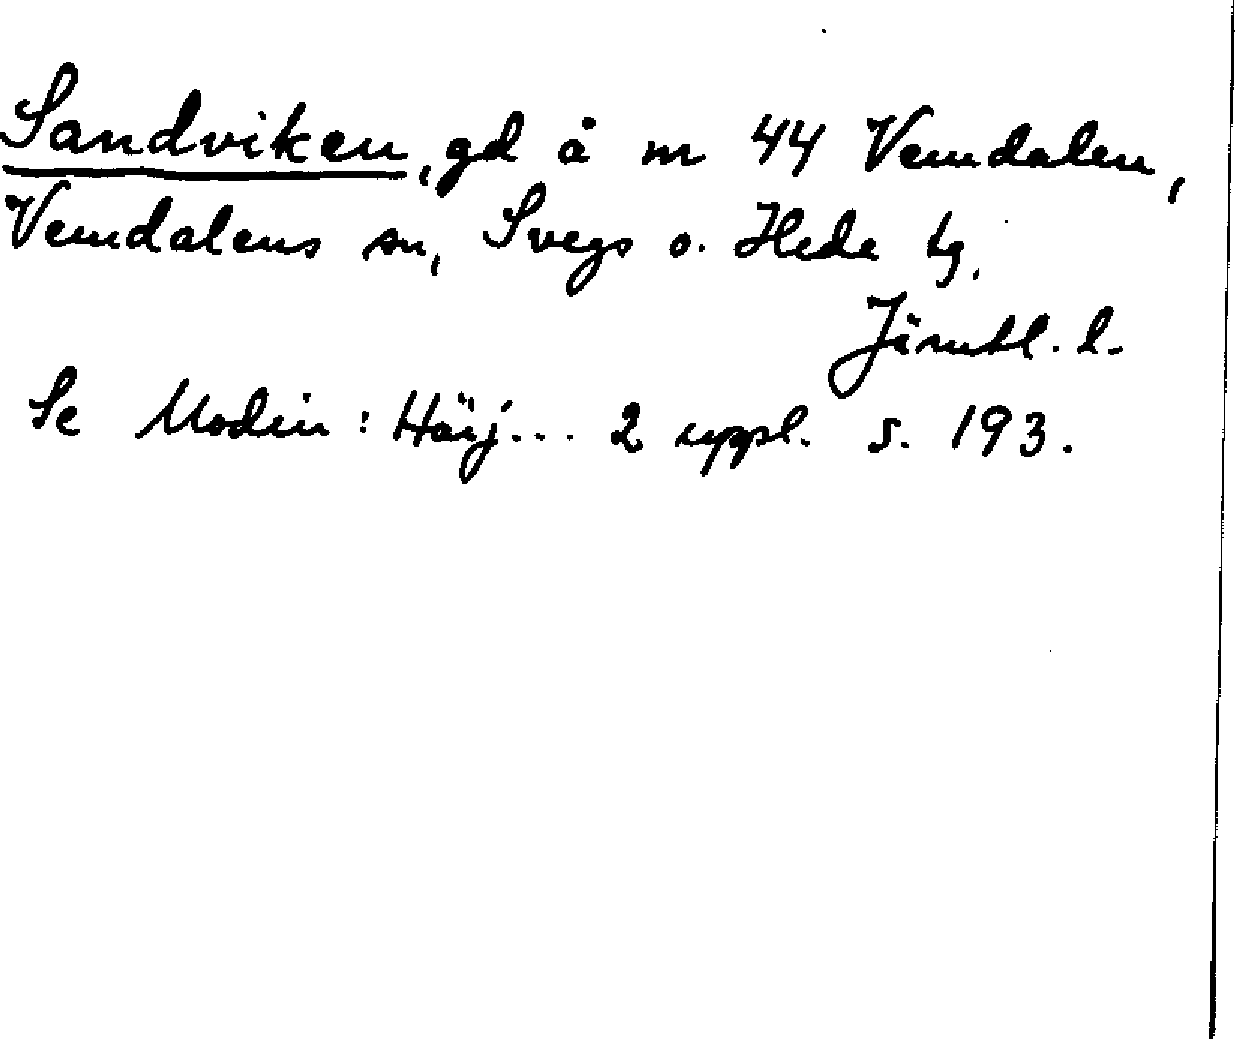 Sandviken, gd å nr 44 Vemdalen,
Vemdalens sn, Svegs o. Hede tg.
Jämtl. l.
Se Modin: Härj... 2 uppl. s. 193.